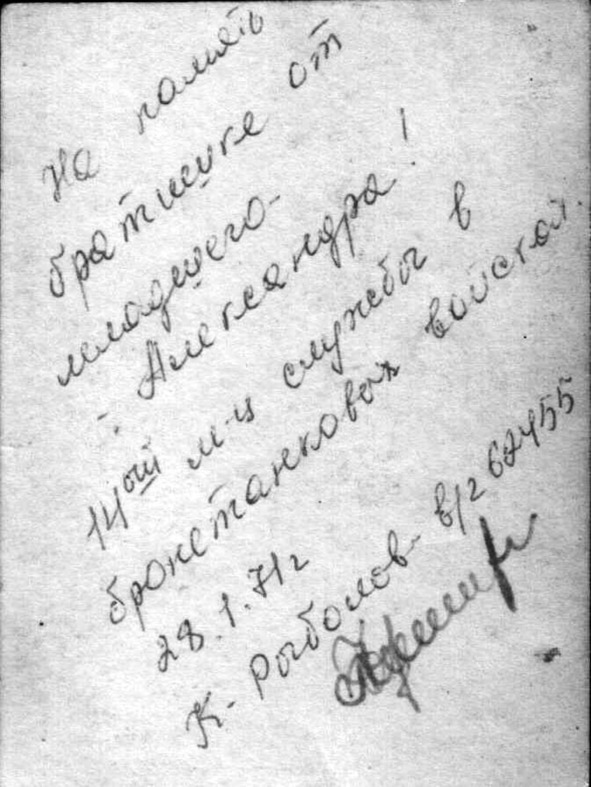 На память
братишке от
младшего-
- Александра!
14ый м-ц службы в
бронетанковых войсках.
28.1.71г
К-Рыболов- в/ч